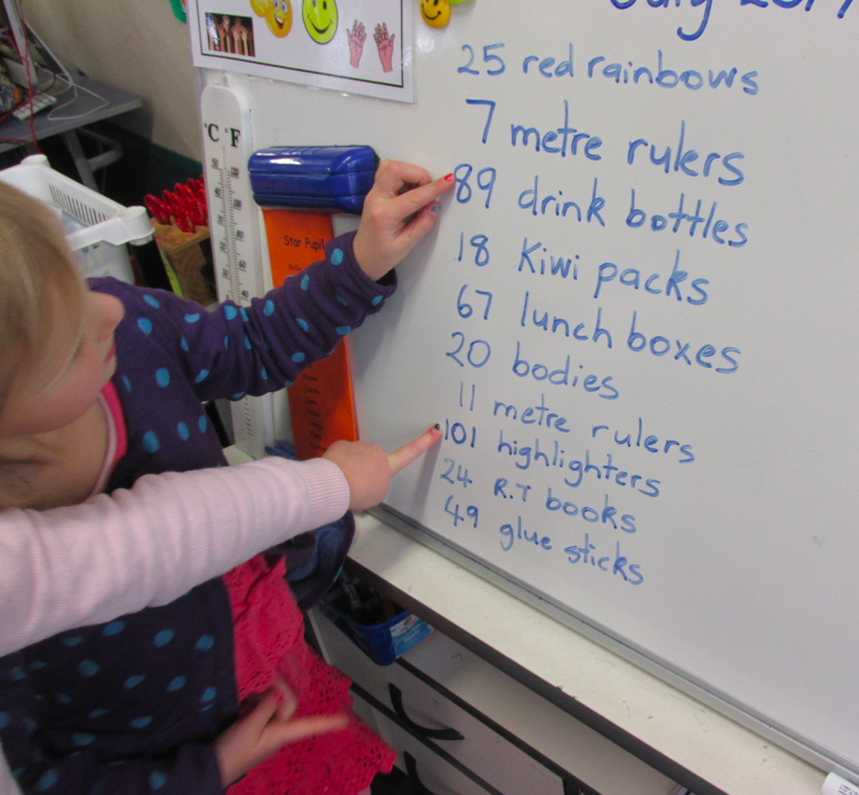 July 2017
25 red rainbows
7 metre rulers
89 drink bottles
18 Kiwi packs
67 lunch boxes
20 bodies
11 metre rulers
101 highlighters
24 R.T books
49 glue sticks
°C °F
Star Pupil